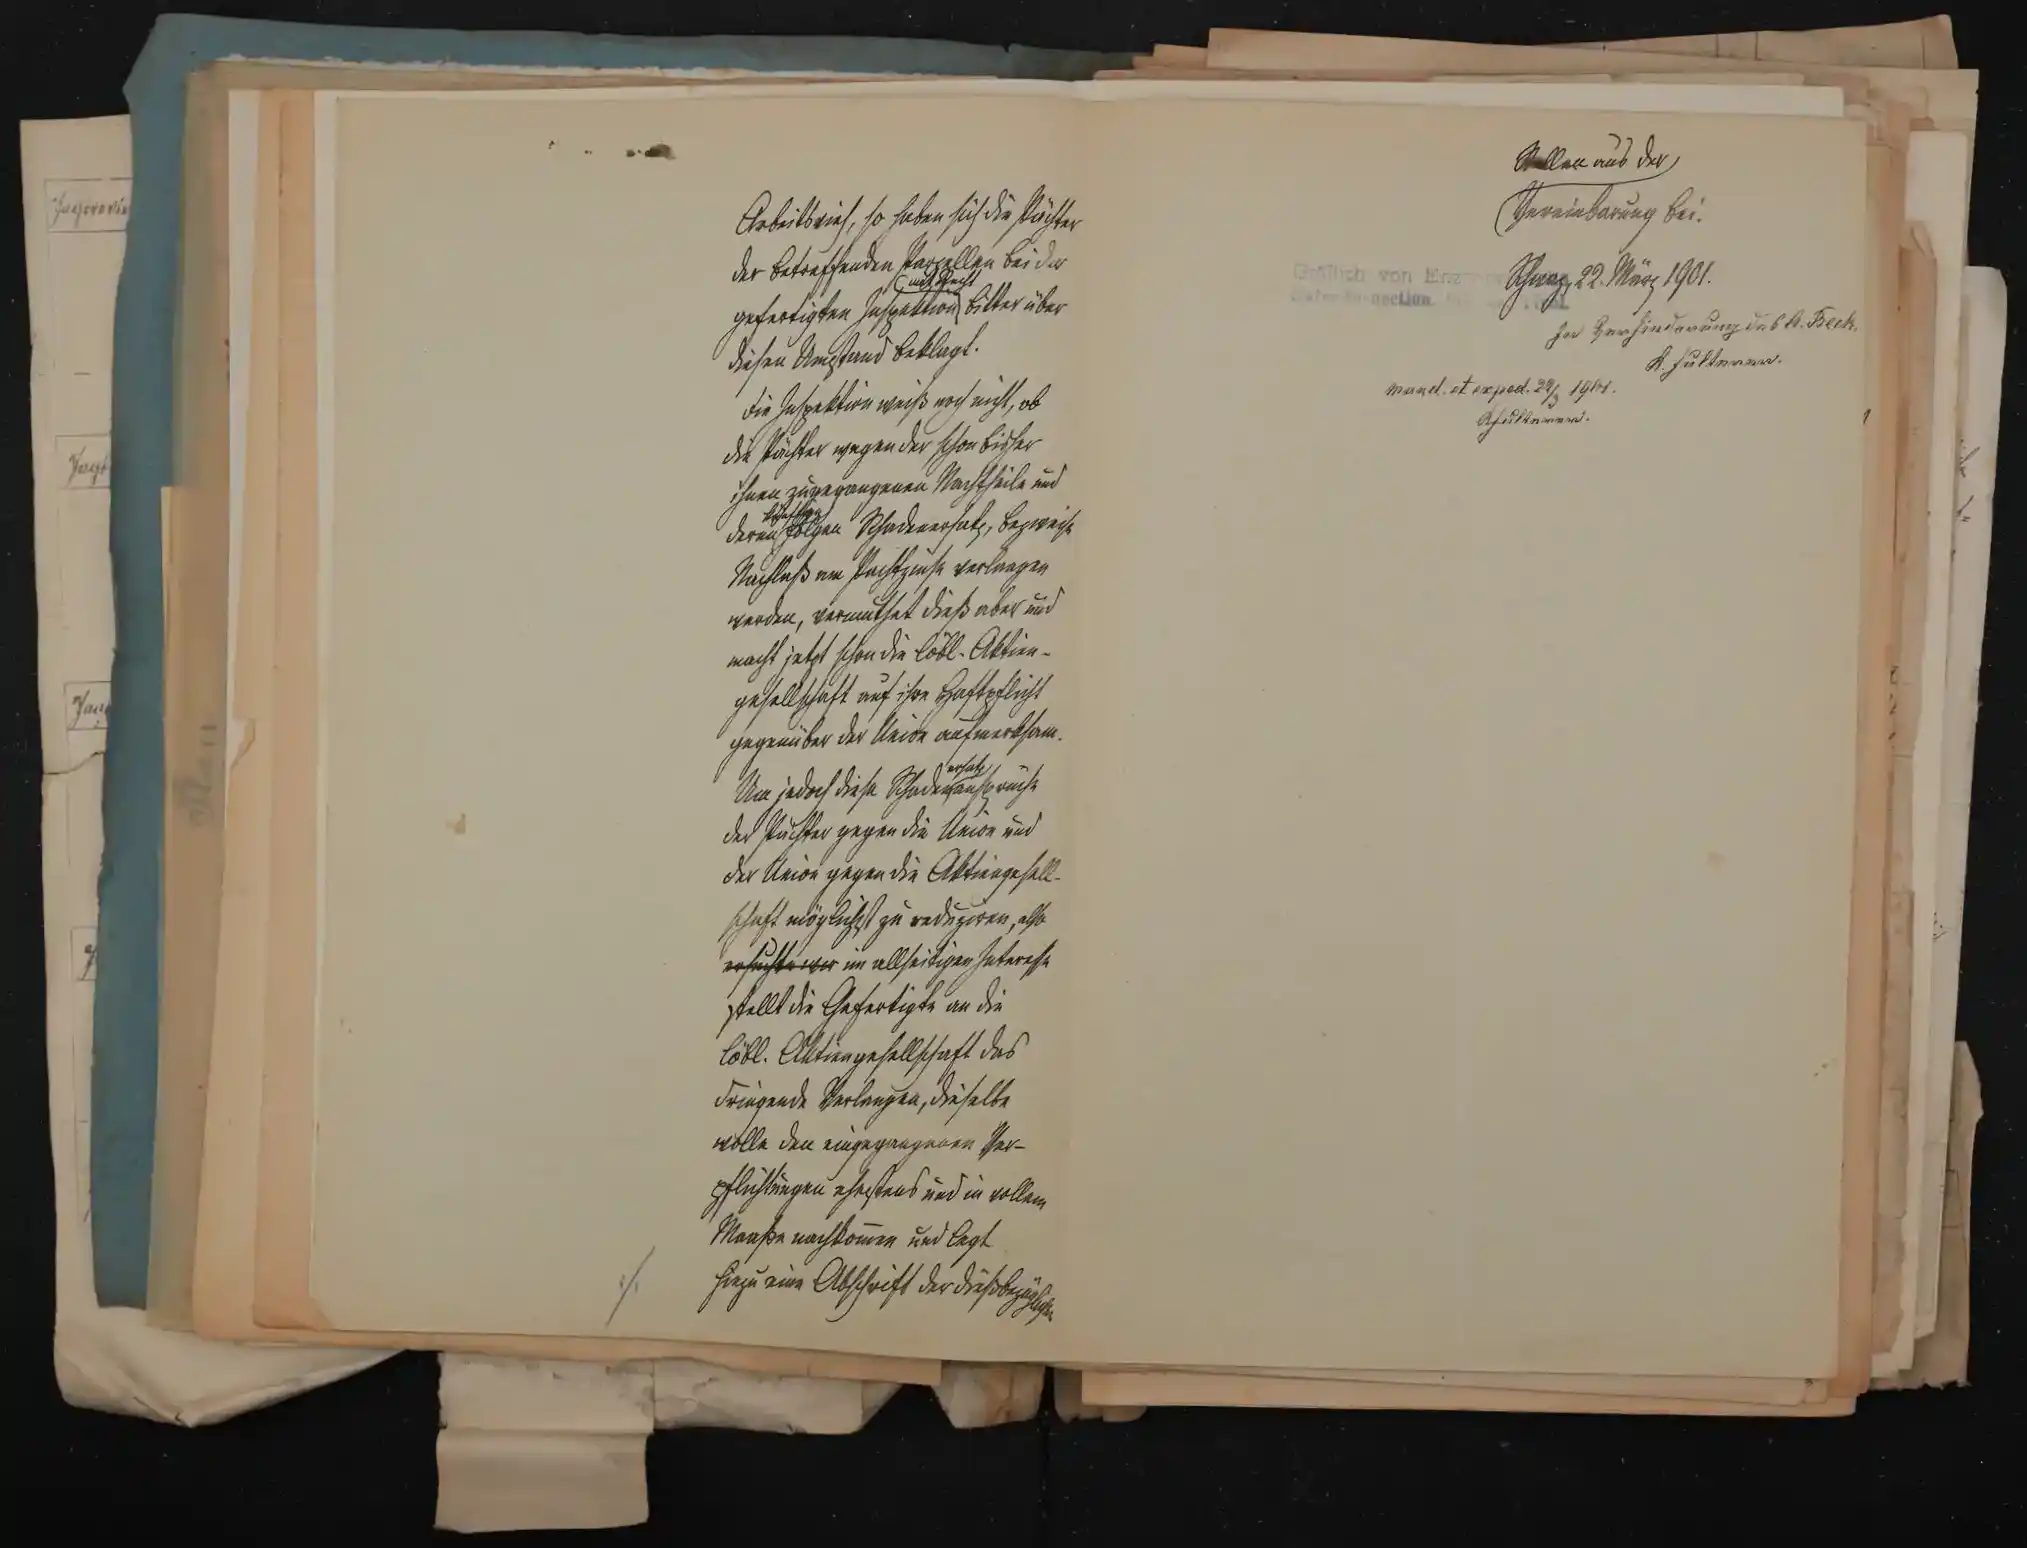 Arbeitsvieh, so haben sich die Pächter
der betreffenden Parzellen bei der
mit Recht
gefertigten Inspektion bitter über
diesen Umstand beklagt.
Die Inspektion weiß noch nicht, ob
die Pächter wegen der schon bisher
ihnen zugegangenen Nachtheile und
deren Folgen Schadenersatz, bezweise
Nachlaß am Pachtzinse verlangen
werden, vermuthet dieß aber und
macht jetzt schon die löbl. Aktien-
gesellschaft auf ihre Haftpflicht
gegenüber der Union aufmerksam.
ersatz
Um jedoch diese Schadenansprüche
der Pächter gegen die Union und
der Union gegen die Aktiengesell-
schaft möglichst zu reduziren, also
ersucht wir im allseitigen Interesse
stellt die Gefertigte an die
löbl. Aktiengesellschaft das
dringende Verlangen, dieselbe
wolle den eingegangenen Ver-
pflichtungen ehestens und in vollem
Maaße nachkommen und legt
hiezu eine Abschrift der dießbezüglichen
./.
Stellen aus der
Vereinbarung bei.
Gräflich von Enzenberg
Schwaz, 22. März 1901.
In Verhinderung des K. Beck.
mund. et exped. 22/3 1901.